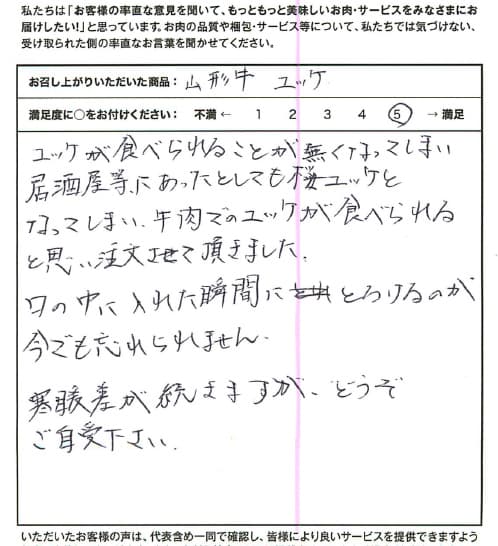 私たちは「お客様の率直な意見を聞いて、もっともっと美味しいお肉・サービスをみなさまにお
届けしたい!」と思っています。お肉の品質や梱包・サービス等について、私たちでは気づけない、
受け取られた側の率直なお言葉を聞かせてください。
お召し上がりいただいた商品： 山形牛 ユッケ
満足度に○をお付けください： 不満 ← 1 2 3 4 5 → 満足
ユッケが食べられることが無くなってしまい
居酒屋等にあったとしても桜ユッケと
なってしまい、牛肉でのユッケが食べられる
と思い注文させて頂きました。
口の中に入れた瞬間にとろけるのが
今でも忘れられません。
寒暖差が続きますが、どうぞ
ご自愛下さい。
いただいたお客様の声は、代表含め一同で確認し、皆様により良いサービスを提供できますよう